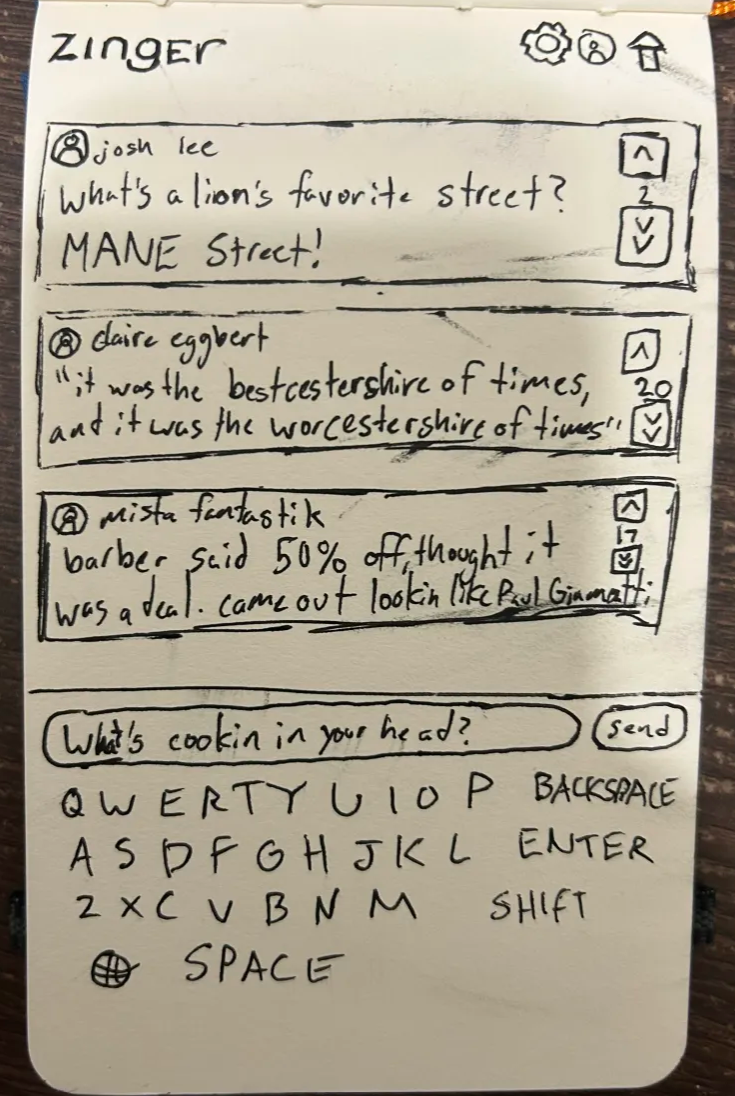 ZINGER
josh lee
What's a lion's favorite street?
2
MANE Street!
claire eggbert
"it was the bestcestershire of times,
20
and it was the worcestershire of times"
mista fantastik
barber said 50% off, thought it
17
was a deal. came out lookin like Paul Giamatti
What's cookin in your head?
send
Q W E R T Y U I O P BACKSPACE
A S D F G H J K L ENTER
Z X C V B N M SHIFT
SPACE